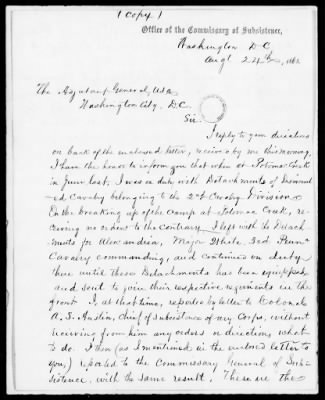 (Copy)
Office of the Commissary of Subsistence,
Washington D.C.
Augt 24th, 186
The Adjutant General, USA
Washington City, D.C.
Sir
I reply to your directions
on back of the enclosed letter, received by me this morning,
I have the honor to inform you that when at Potomac Creek
in June last, I was on duty with Detachments of Dismount
ed Cavalry belonging to the 2nd Cavalry Division &
On the breaking up of the Camp at Potomac Creek, re-
ceiving no orders to the Contrary I left with the Detach
ments for Alexandria, Major White, 3rd Penna
Cavalry commanding, and continued on duty
there until these Detachments has been equipped
and sent to join their respective regiments in the
front I, at that time, reported by letter to Colonel
A. S. Austin, Chief of Subsistence of my Corps, without
receiving from him any orders or directions what
to do. I then (as I mentioned in the enclosed letter to
you,) reported to the Commissary General of Sub-
sistence, with the same result. These are the